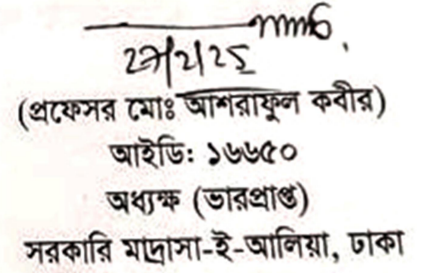 27/2/25
(প্রফেসর মোঃ আশরাফুল কবীর)
আইডি: ১৬৬৫০
অধ্যক্ষ (ভারপ্রাপ্ত)
সরকারি মাদ্রাসা-ই-আলিয়া, ঢাকা